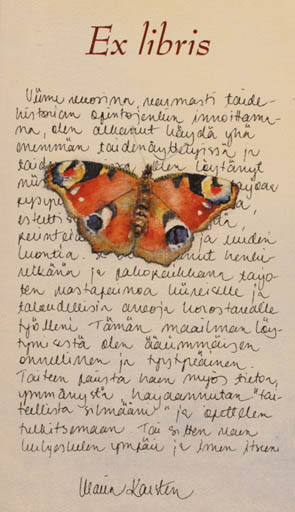 Ex libris
Viime vuosina, varmasti taide-
historian opintojenkin innoittama-
na, olen alkanut käydä yhä
enemmän taidenäyttelyissä ja
olen löytänyt
ja uuden
luontia. henki-
reikänä ja pakopaikkana tarjo-
ten vastapainoa kiireiselle ja
taloudellisia arvoja korostavalle
työlleni. Tämän maailman löy-
tymisestä olen äärimmäisen
onnellinen ja tyytyväinen.
Taiteen parista haen myös tietoa,
ymmärrystä, harjaannutan "tai-
teellista silmääni" ja opettelen
tulkitsemaan. Tai sitten vaan
kuljeskelen ympäri ja imen itseni
Maria Karsten